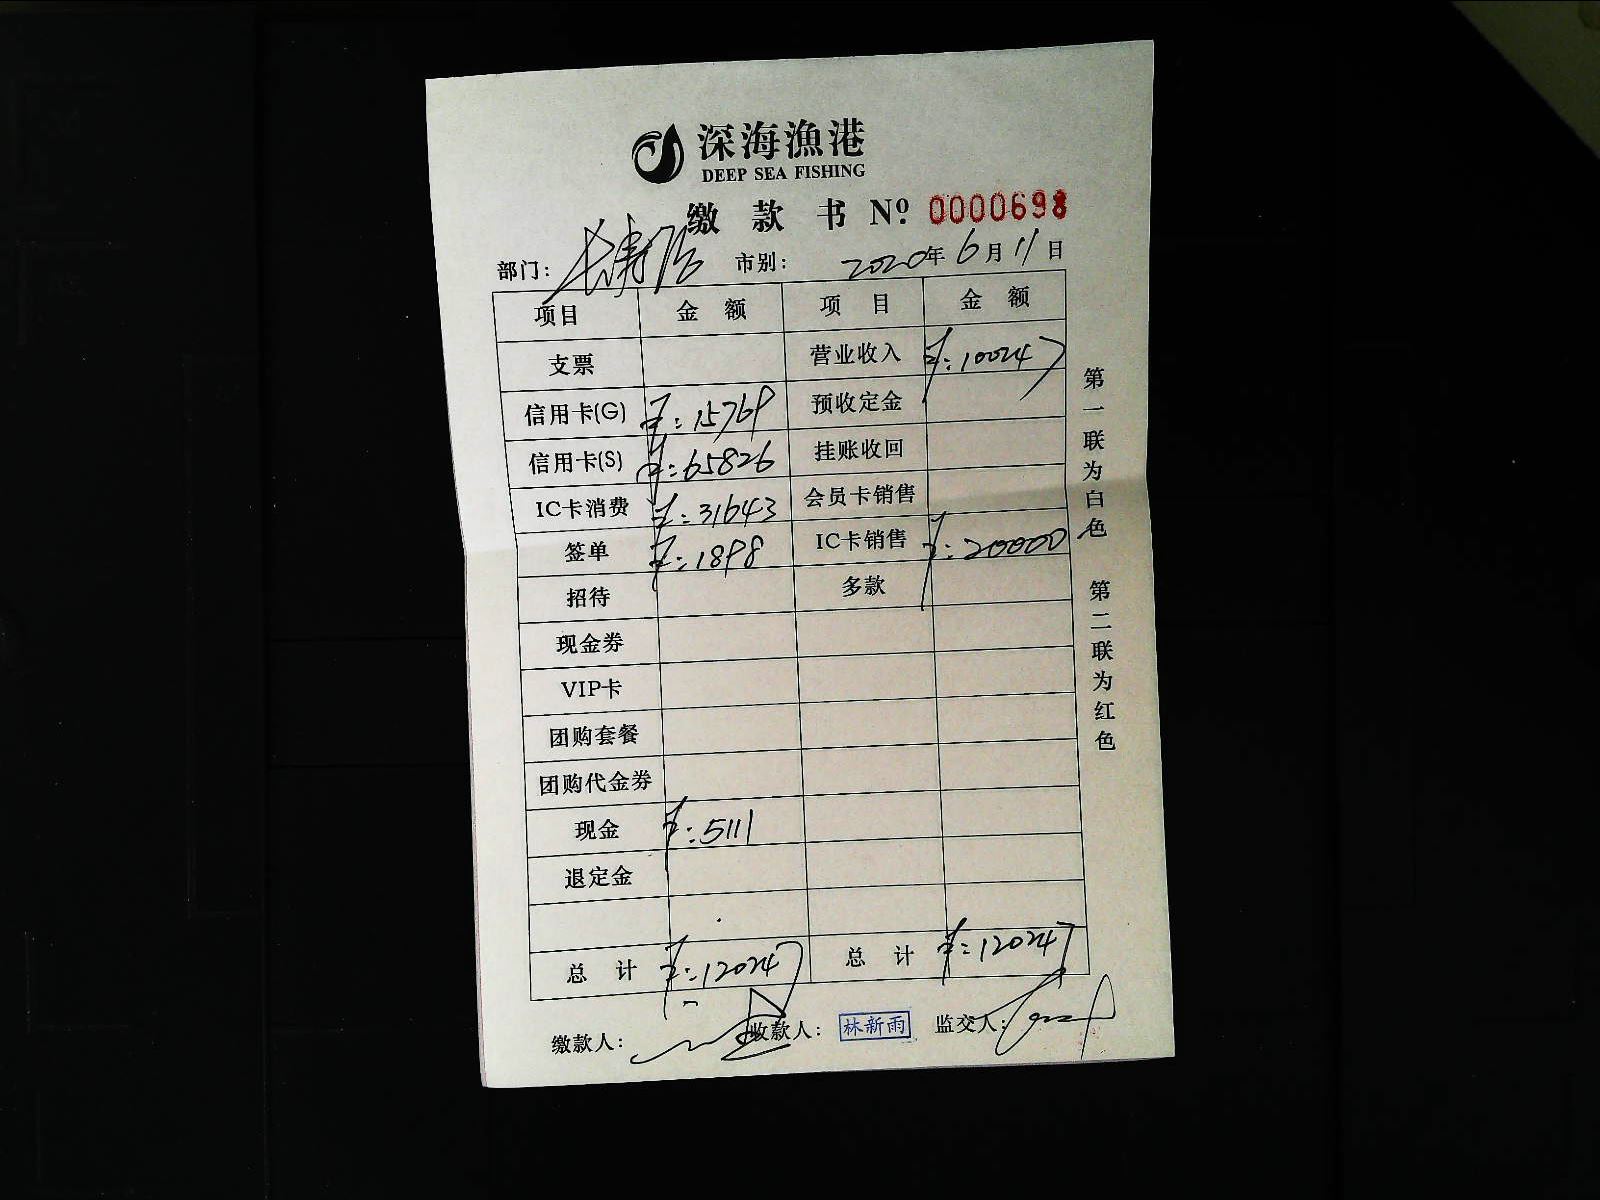 深海漁港
DEEP SEA FISHING
缴款书 Nº 0000698
部门: 长寿路 市别: 2020年6月11日
项目 金额 项目 金额
支票 营业收入 ¥:100247
信用卡(G) ¥:15769 预收定金
信用卡(S) ¥:65826 挂账收回
IC卡消费 ¥:31643 会员卡销售
签单 ¥:1898 IC卡销售 ¥:20000
招待 多款
现金券
VIP卡
团购套餐
团购代金券
现金 ¥:5111
退定金
总计 ¥:120247 总计 ¥:120247
缴款人: 收款人: 林新雨 监交人:
第一联为白色 第二联为红色